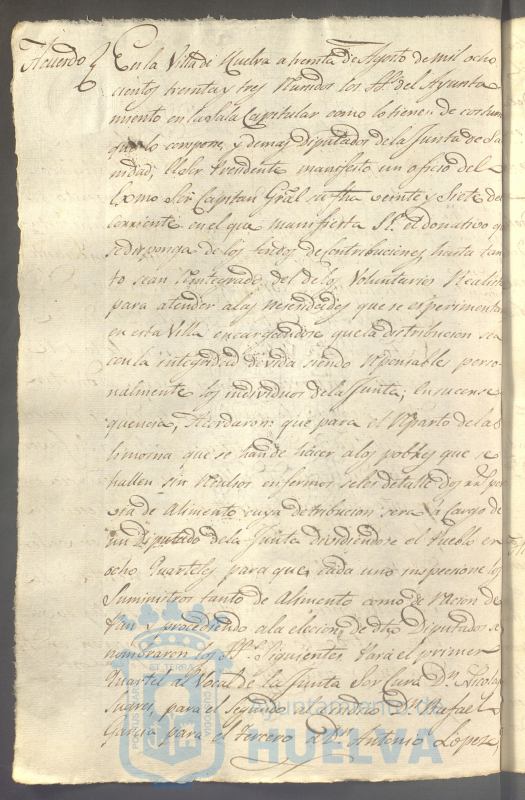 Acuerdo
En la Villa de Huelva a treinta de Agosto de mil ocho
cientos treinta y tres Reunidos los SS. del Ayunta
miento en la Sala Capitular como lo tienen de costum
que lo compone, y demas Diputados de la Junta de Sa
nidad; el Sor Presidente manifesto un oficio del
Exmo Sor Capitan Gral su fha veinte y Siete del
corriente en el que manifiesta S.E. el donativo q
se disponga de los fondos de contribuciones hasta tan
to sean reintegrados del de los Voluntarios Realistas
para atender a las necesidades que se experimentan
en esta Villa encargandose que la distribucion sea
con la integridad devida siendo responsables perso
nalmente los individuos de la Junta; En su conse
quencia, Acordaron que para el Reparto de la
limosna que se han de hacer a los pobres que se
hallen sin recursos enfermos se les detalle dos rs. por
via de Alimento cuya distribucion sera a cargo de
un Diputado de la Junta dividiendose el Pueblo en
ocho Quarteles para que cada uno inspecione los
Suministros tanto de Alimento como de Racion de
Pan y procediendo a la eleccion de dhos Diputados se
nombraron los SS. Siguientes Para el primer
Quartel al Vocal de la Junta Sor Cura Dn. Nicolas
Suares, para el Segundo al Sindico Dn. Rafael
Garcia para el tercero a Dn. Antonio Lopez
PORTUS MARIS
ET TERRAE
CUSTODIA
Ayuntamiento de
HUELVA